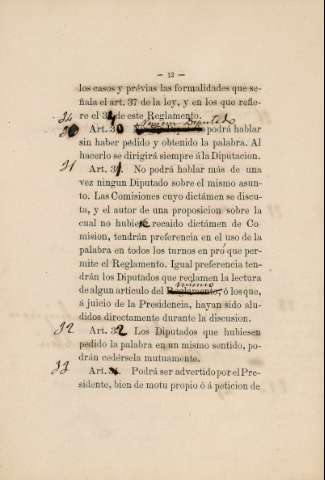 — 13 —
los casos y prévias las formalidades que se-
ñala el art. 37 de la ley, y en los que refie-
re el 34 de este Reglamento.
Ningun Diputado
30 Art. 30 podrá hablar
sin haber pedido y obtenido la palabra. Al
hacerlo se dirigirá siempre á la Diputacion.
31 Art. 31. No podrá hablar más de una
vez ningun Diputado sobre el mismo asun-
to. Las Comisiones cuyo dictámen se discu-
ta, y el autor de una proposicion sobre la
cual no hubiere recaido dictámen de Co-
mision, tendrán preferencia en el uso de la
palabra en todos los turnos en pró que per-
mite el Reglamento. Igual preferencia ten-
drán los Diputados que reclamen la lectura
mismo
de algun artículo del Reglamento, ó los que,
á juicio de la Presidencia, hayan sido alu-
didos directamente durante la discusion.
32 Art. 32 Los Diputados que hubiesen
pedido la palabra en un mismo sentido, po-
drán cedérsela mutuamente.
33 Art. Podrá ser advertido por el Pre-
sidente, bien de motu propio ó á peticion de